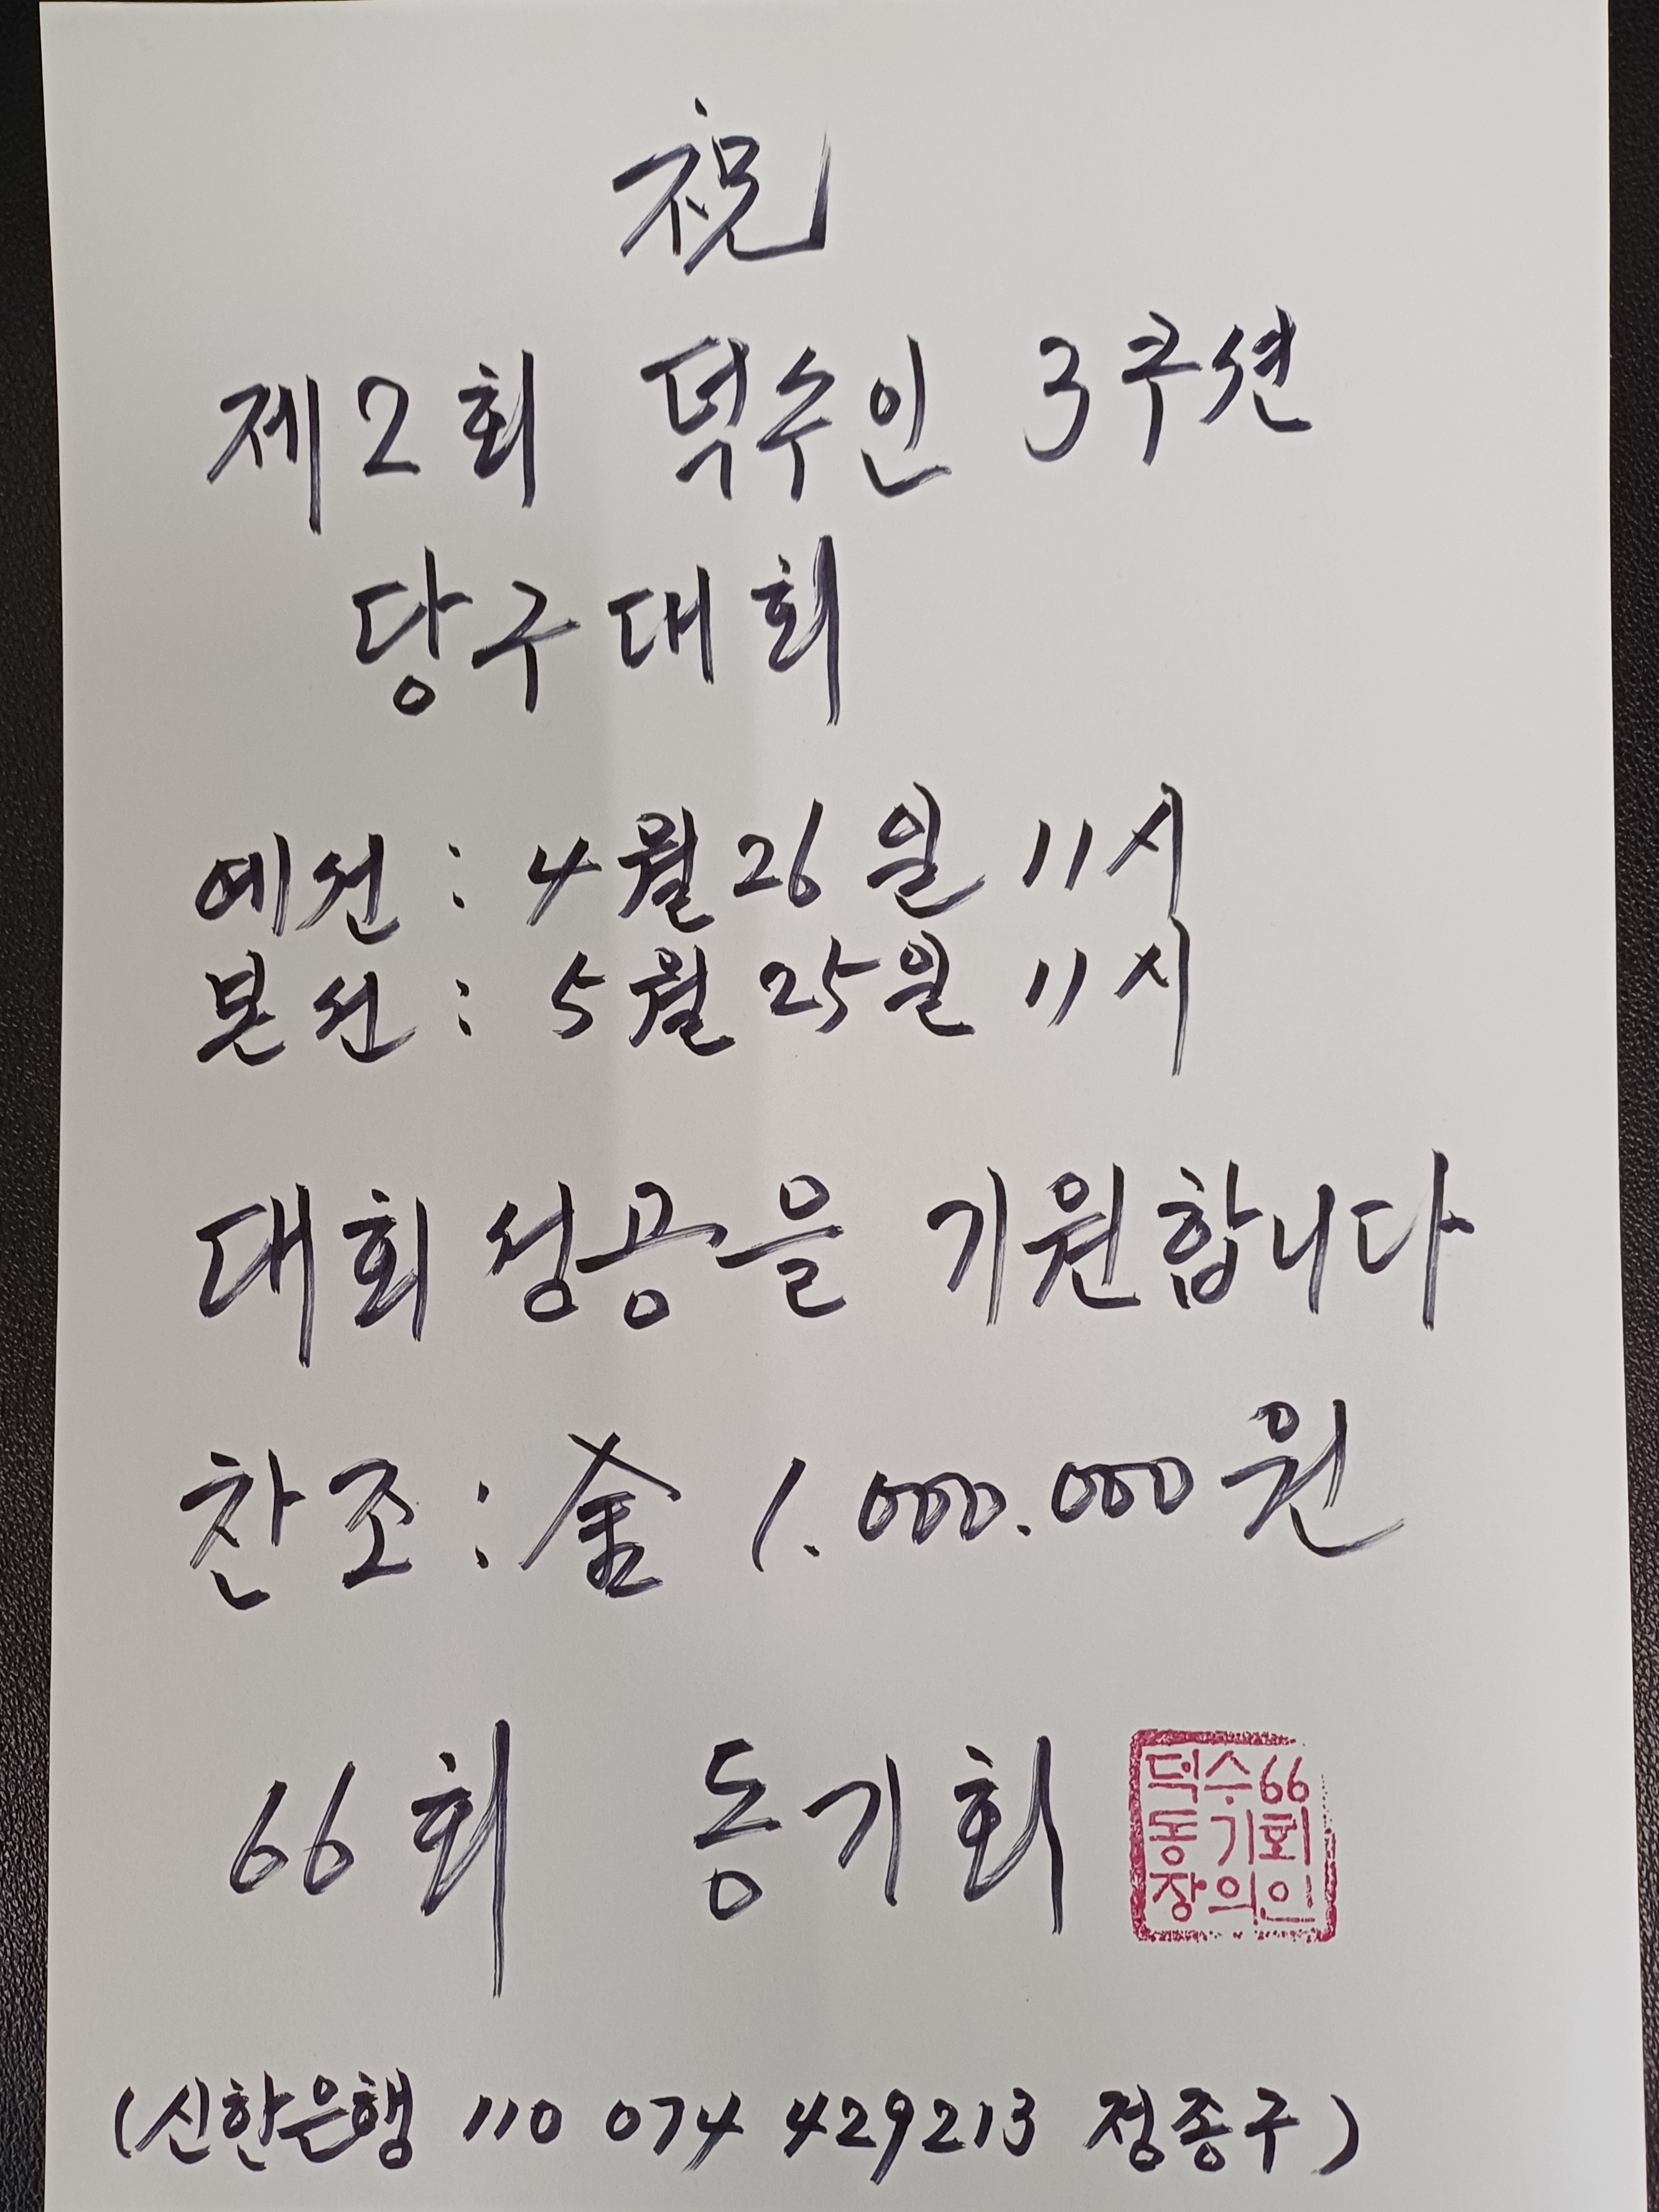 祝
제2회 덕수인 3쿠션
당구대회
예선 : 4월 26일 11시
본선 : 5월 25일 11시
대회 성공을 기원합니다
찬조 : 金 1.000.000원
66회 동기회
덕수66
동기회
장의인
(신한은행 110 074 429213 정종구)